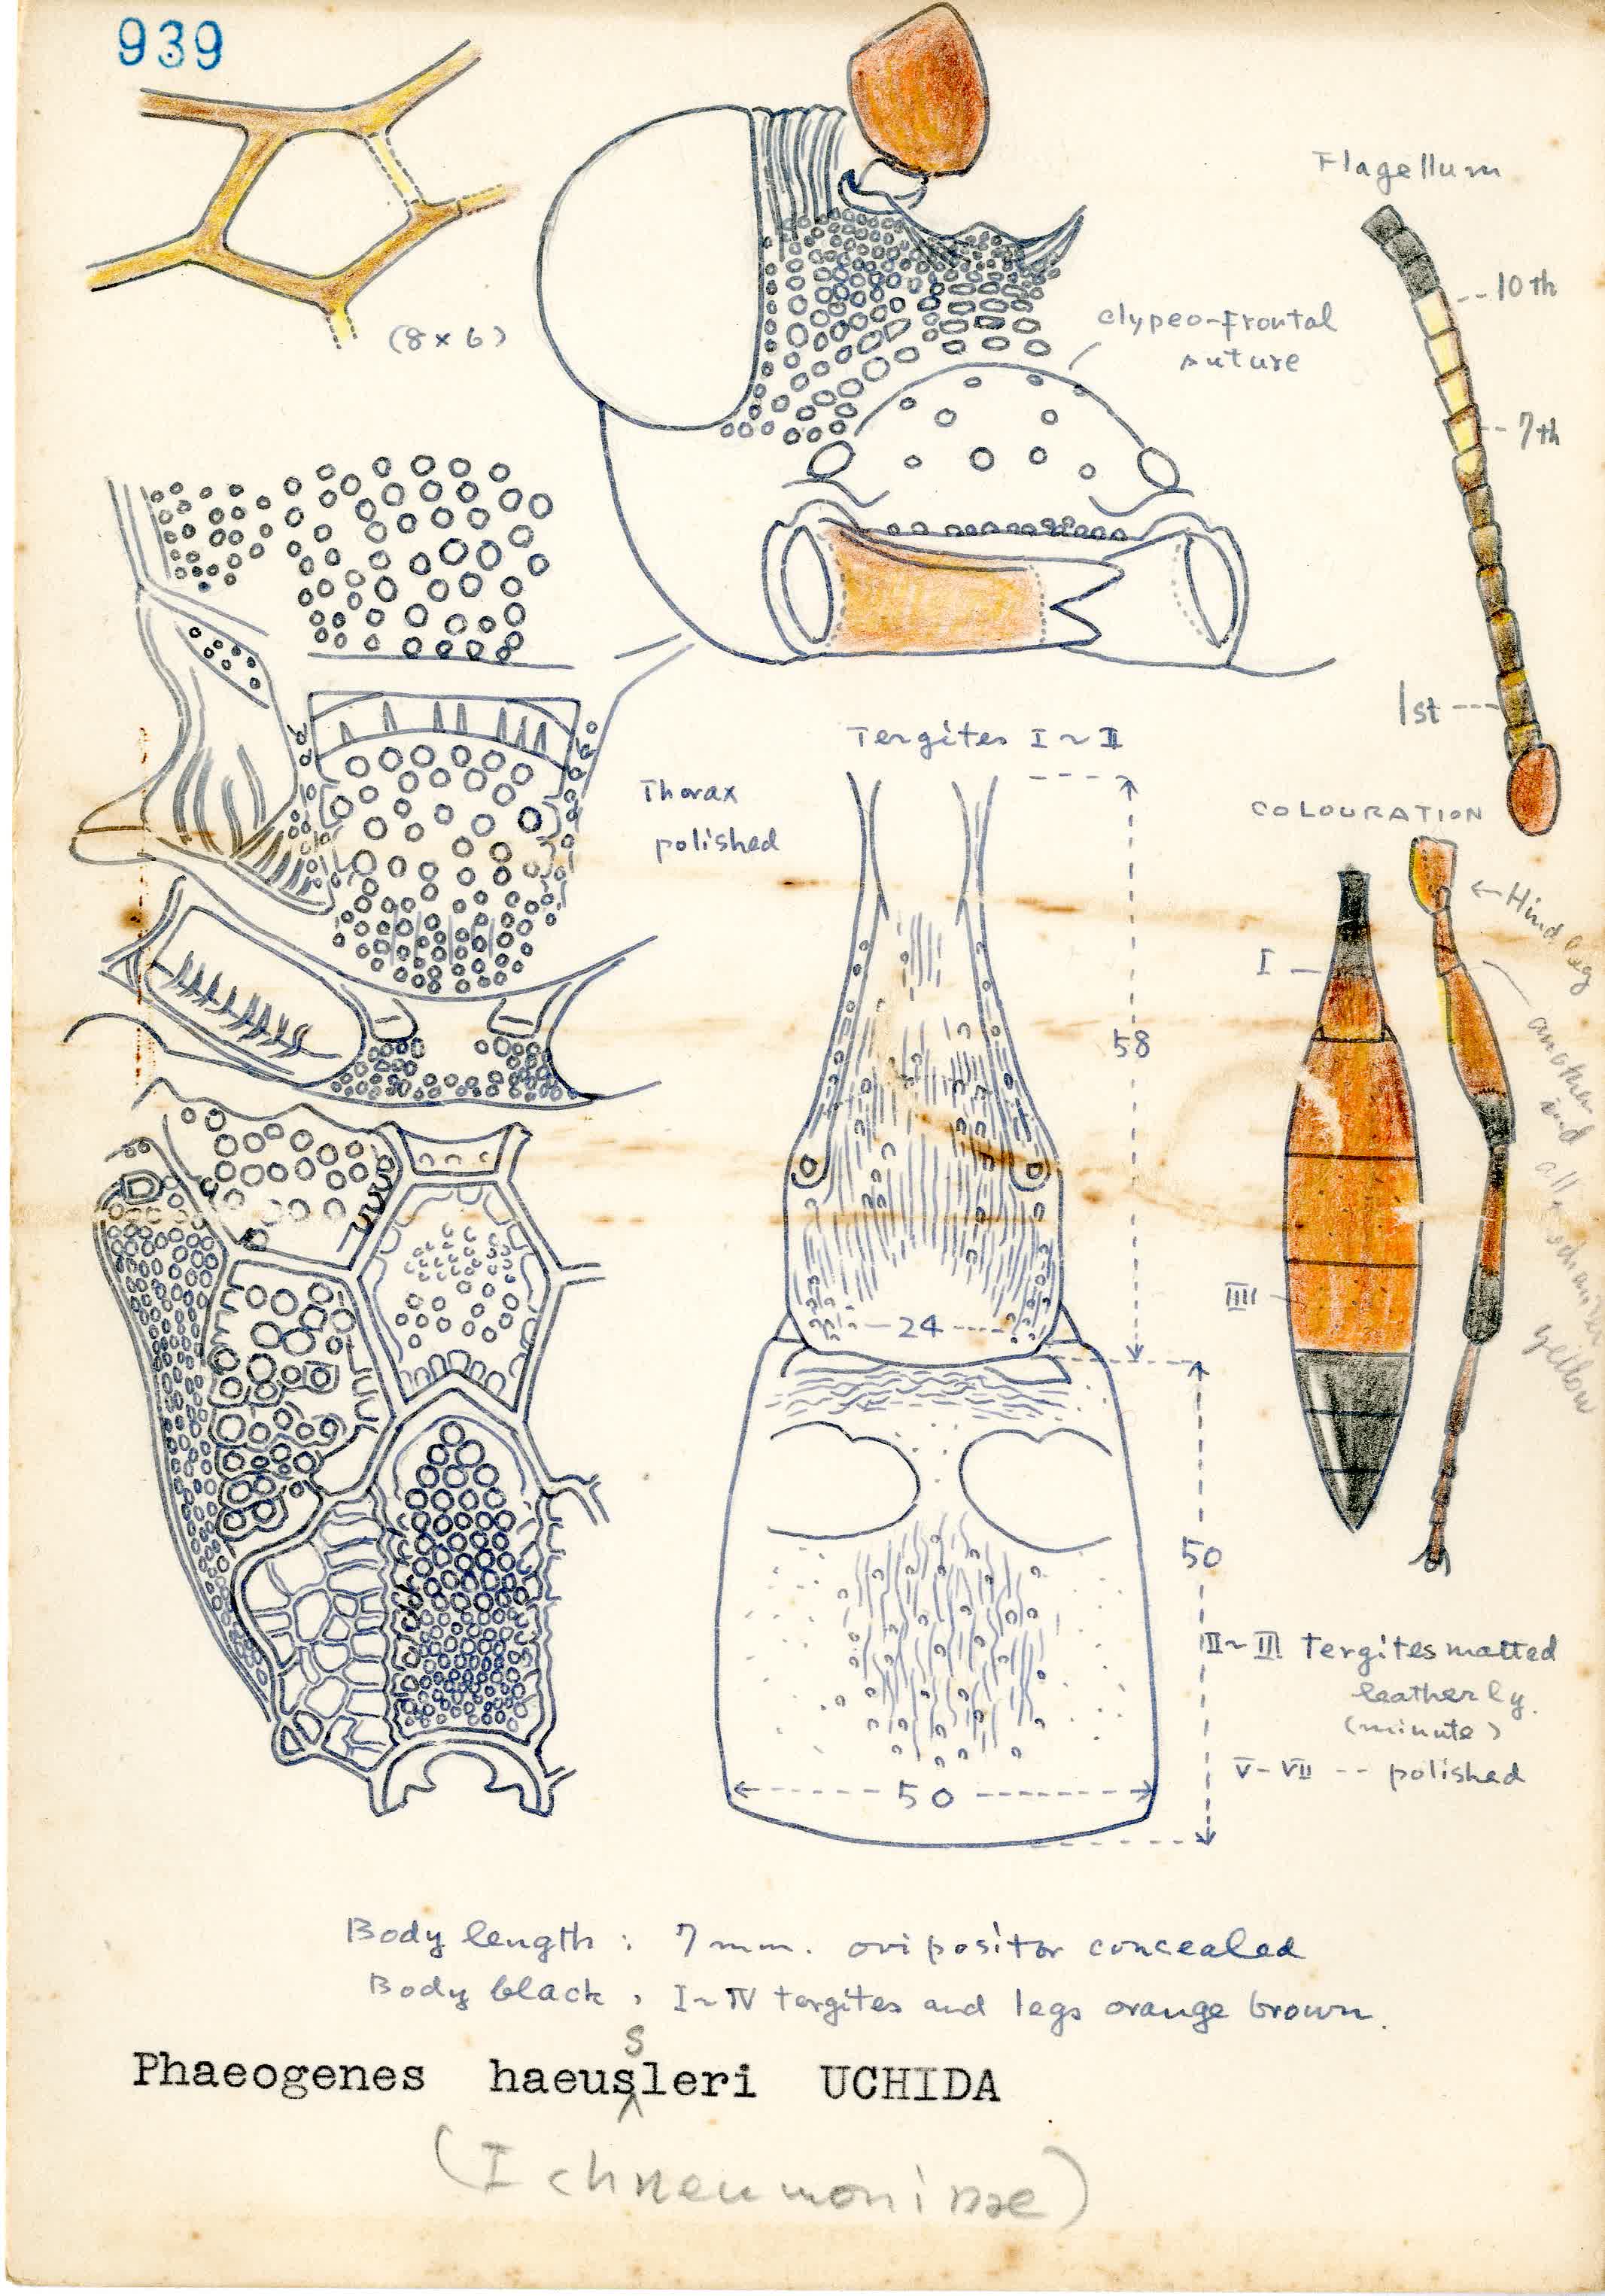 939
Flagellum
10th
(8 × 6)
clypeo-frontal
suture
7th
1st
Tergites I ~ II
Thorax
polished
COLOURATION
← Hind leg
I
another
and
all
yellow
58
24
IIII
50
50
II ~ III Tergites matted
leatherly.
(minute)
V - VII -- polished
Body length : 7 mm. ovipositor concealed
Body black , I ~ IV tergites and legs orange brown.
s
Phaeogenes haeusleri UCHIDA
(Ichneumoninae)